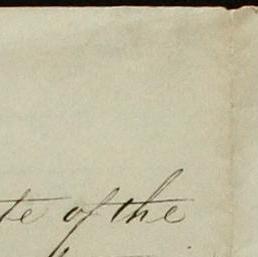 te of the